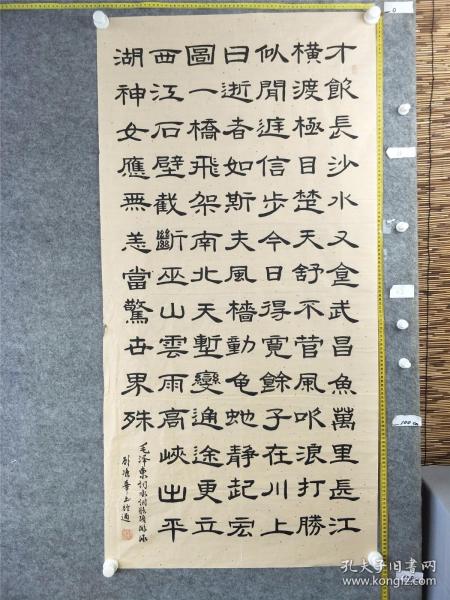 才飲長沙水又食武昌魚萬里長江
橫渡極目楚天舒不管風吹浪打勝
似閒庭信步今日得寬餘子在川上
曰逝者如斯夫風檣動龜蛇靜起宏
圖一橋飛架南北天塹變通途更立
西江石壁截斷巫山雲雨高峽出平
湖神女應無恙當驚世界殊
毛泽東詞水調歌頭游泳
100cm
孔夫子旧书网
www.kongfz.com